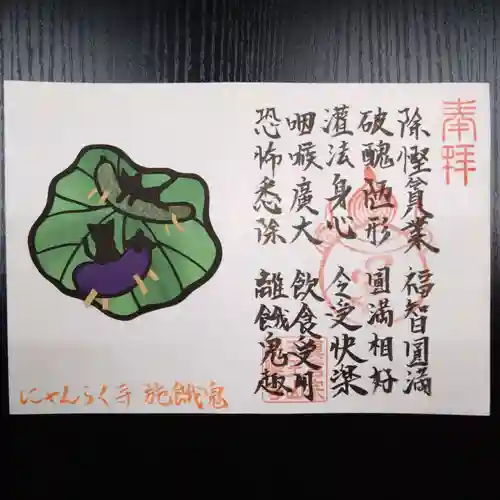 奉拝
除慳貪業 福智圓滿
破醜陋形 圓満相好
灌法身心 令受快楽
咽喉廣大 飲食受用
恐怖悉除 離餓鬼趣
にゃんらく寺 施餓鬼